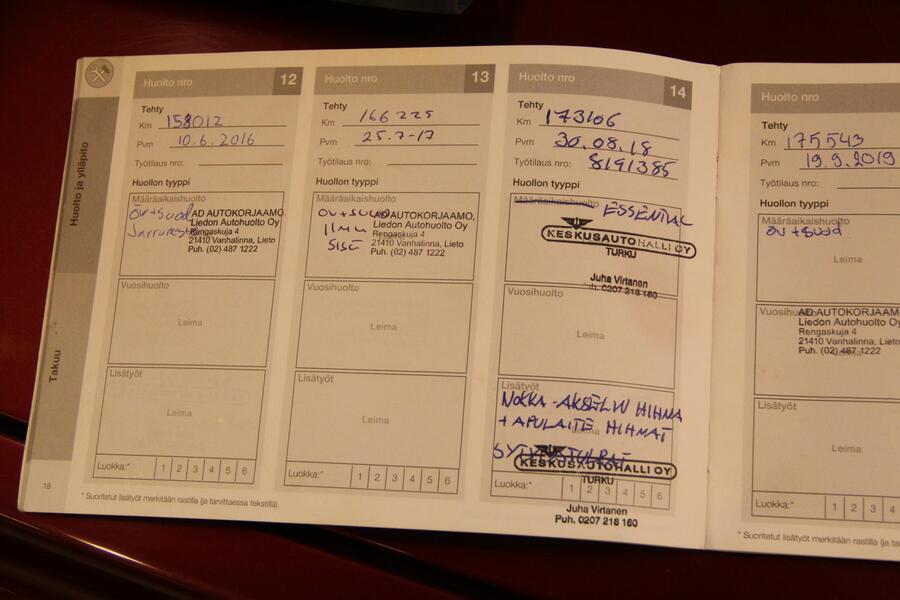 Huolto ja ylläpito
Takuu
Huolto nro 12
Tehty
Km 158012
Pvm 10.6.2016
Työtilaus nro:
Huollon tyyppi
Määräaikaishuolto
Öv+suod
AD AUTOKORJAAMO,
Liedon Autohuolto Oy
Rengaskuja 4
21410 Vanhalinna, Lieto
Puh. (02) 487 1222
Vuosihuolto
Leima
Lisätyöt
Leima
Luokka:* 1 2 3 4 5 6
18
* Suoritetut lisätyöt merkitään rastilla (ja tarvittaessa tekstillä).
Huolto nro 13
Tehty
Km 166225
Pvm 25.7-17
Työtilaus nro:
Huollon tyyppi
Määräaikaishuolto
öv+suod
ilma
sisä
AD AUTOKORJAAMO,
Liedon Autohuolto Oy
Rengaskuja 4
21410 Vanhalinna, Lieto
Puh. (02) 487 1222
Vuosihuolto
Leima
Lisätyöt
Leima
Luokka:* 1 2 3 4 5 6
Huolto nro 14
Tehty
Km 173106
Pvm 30.08.18
Työtilaus nro: 8191385
Huollon tyyppi
Määräaikaishuolto
ESSENTIAL
KESKUSAUTOHALLI OY
TURKU
Juha Virtanen
Puh. 0207 218 160
Vuosihuolto
Leima
Lisätyöt
NOKKA-AKSELIN HIHNA
+ APULAITE HIHNAT
SYTYTYSTULPAT
KESKUSAUTOHALLI OY
TURKU
Luokka:* 1 2 3 4 5 6
Juha Virtanen
Puh. 0207 218 160
Huolto nro
Tehty
Km 175543
Pvm 19.9.2019
Työtilaus nro:
Huollon tyyppi
Määräaikaishuolto
öv+suod
Leima
Vuosihuolto
AD AUTOKORJAAMO
Liedon Autohuolto Oy
Rengaskuja 4
21410 Vanhalinna, Lieto
Puh. (02) 487 1222
Lisätyöt
Leima
Luokka:* 1 2 3 4
* Suoritetut lisätyöt merkitään rastilla (ja